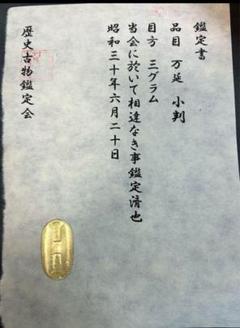 鑑定書
品目 万延 小判
目方 三グラム
当会に於いて相違なき事鑑定済也
昭和三十年六月二十日
歴史古物鑑定会